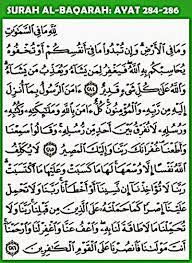 SURAH AL-BAQARAH: AYAT 284-286
لِلَّهِ مَا فِي السَّمَاوَاتِ
وَمَا فِي الْأَرْضِ وَإِنْ تُبْدُوا مَا فِي أَنْفُسِكُمْ أَوْ تُخْفُوهُ
يُحَاسِبْكُمْ بِهِ اللَّهُ فَيَغْفِرُ لِمَنْ يَشَاءُ وَيُعَذِّبُ مَنْ يَشَاءُ
وَاللَّهُ عَلَى كُلِّ شَيْءٍ قَدِيرٌ ﴿٢٨٤﴾ آمَنَ الرَّسُولُ بِمَا أُنْزِلَ
إِلَيْهِ مِنْ رَبِّهِ وَالْمُؤْمِنُونَ كُلٌّ آمَنَ بِاللَّهِ وَمَلَائِكَتِهِ وَكُتُبِهِ
وَرُسُلِهِ لَا نُفَرِّقُ بَيْنَ أَحَدٍ مِنْ رُسُلِهِ وَقَالُوا سَمِعْنَا
وَأَطَعْنَا غُفْرَانَكَ رَبَّنَا وَإِلَيْكَ الْمَصِيرُ ﴿٢٨٥﴾ لَا يُكَلِّفُ
اللَّهُ نَفْسًا إِلَّا وُسْعَهَا لَهَا مَا كَسَبَتْ وَعَلَيْهَا مَا اكْتَسَبَتْ
رَبَّنَا لَا تُؤَاخِذْنَا إِنْ نَسِينَا أَوْ أَخْطَأْنَا رَبَّنَا وَلَا تَحْمِلْ
عَلَيْنَا إِصْرًا كَمَا حَمَلْتَهُ عَلَى الَّذِينَ مِنْ قَبْلِنَا رَبَّنَا وَلَا
تُحَمِّلْنَا مَا لَا طَاقَةَ لَنَا بِهِ وَاعْفُ عَنَّا وَاغْفِرْ لَنَا وَارْحَمْنَا
أَنْتَ مَوْلَانَا فَانْصُرْنَا عَلَى الْقَوْمِ الْكَافِرِينَ ﴿٢٨٦﴾